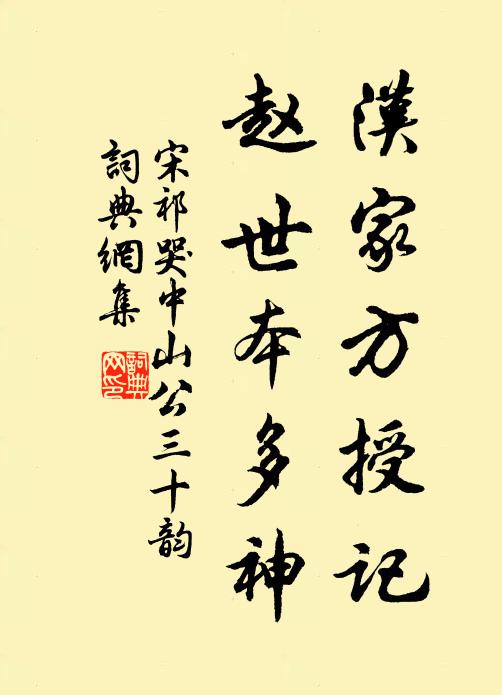 漢家方授記
赵世本多神
宋祁哭中山公三十韵
詞典網集
詞典
网印